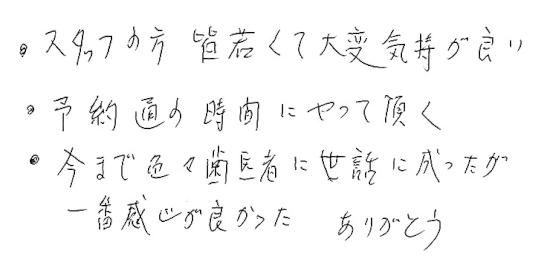 • スタッフの方 皆若くて大変気持が良い
• 予約通の時間にやって頂く
• 今まで色々歯医者に世話に成ったが
一番感じが良かった ありがとう